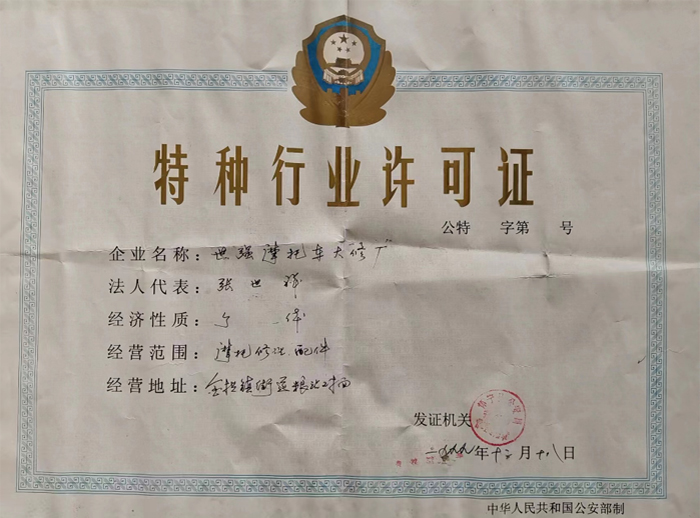 特种行业许可证
公特 字第 号
企业名称：世强摩托车大修厂
法人代表：张世
经济性质：个 体
经营范围：摩托修理 配件
经营地址：金 镇街道 对面
发证机关
一九九九年十二月十八日
中华人民共和国公安部制